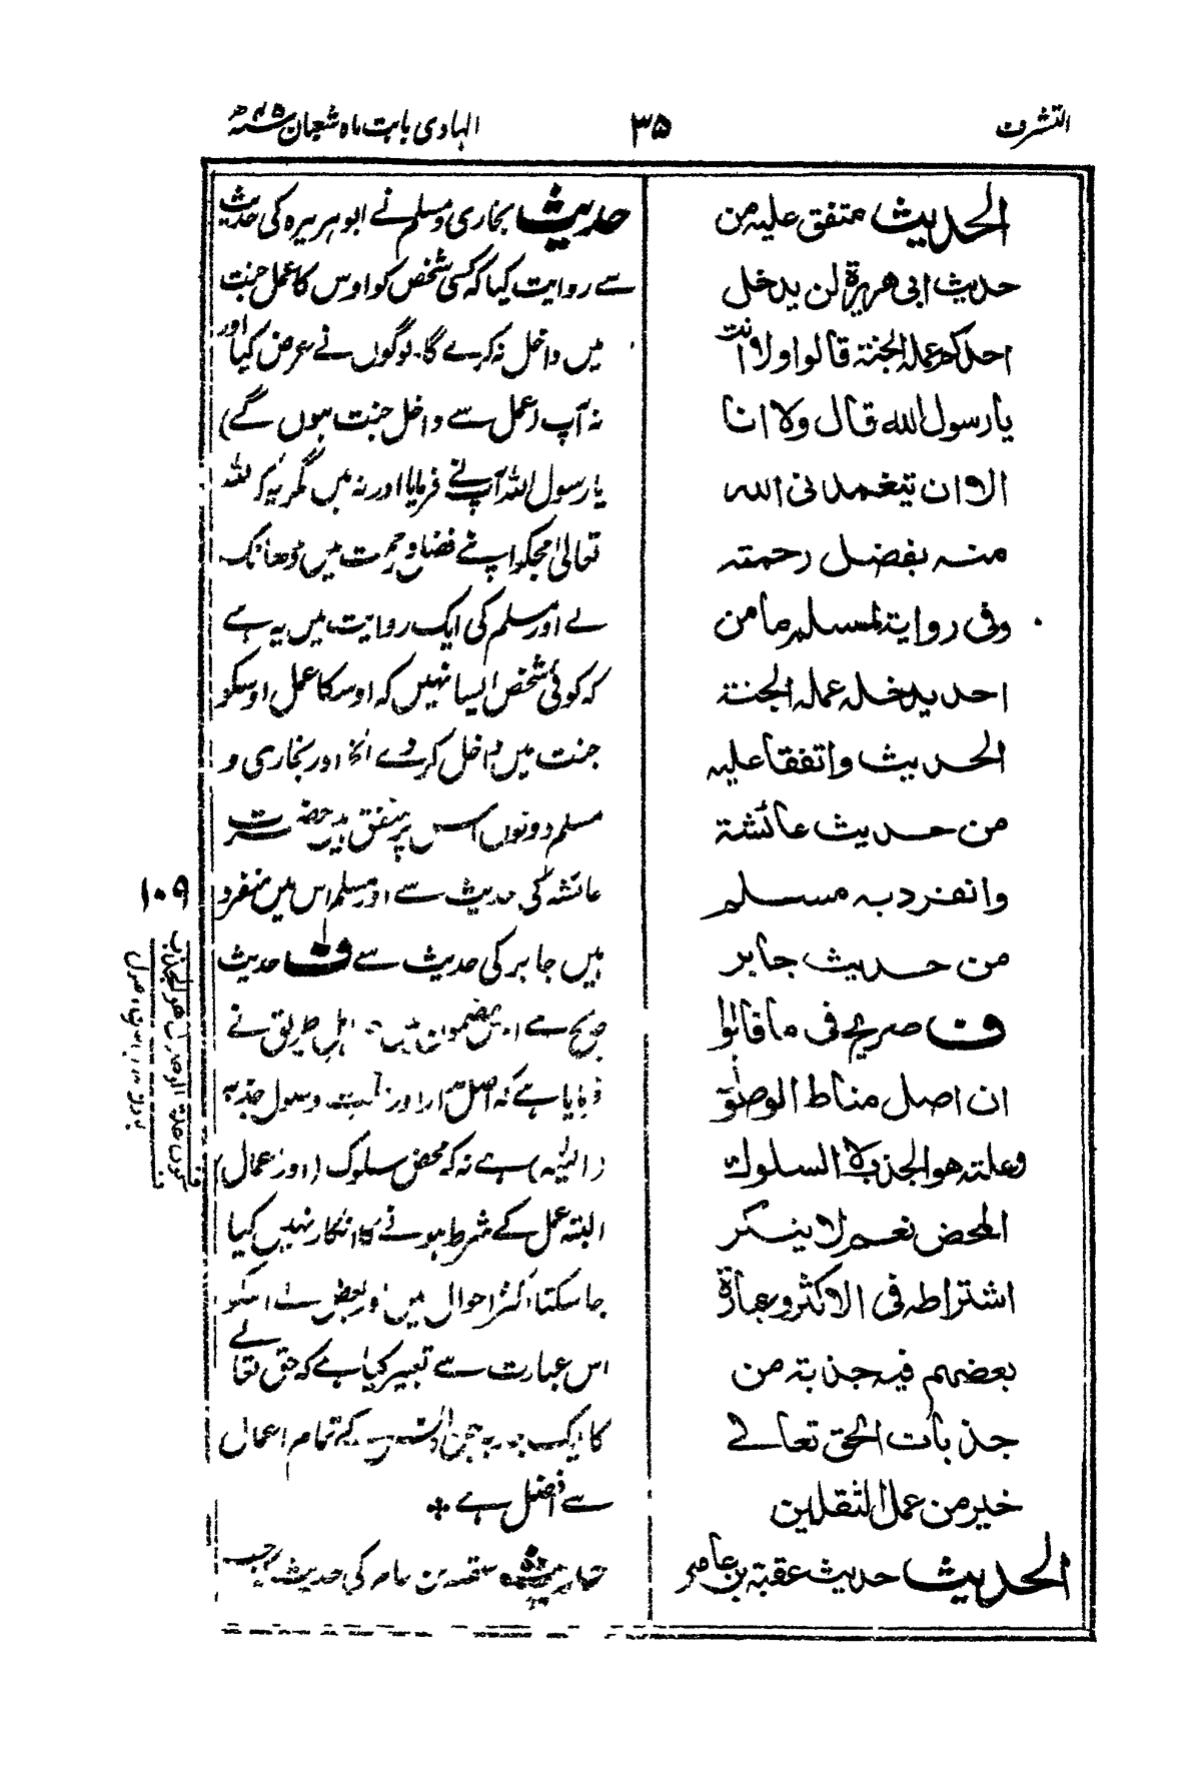 التشرف
۳۵
الہادی بابت ماہ شعبان
الحدیث متفق علیہ من
حدیث ابی ھریرۃ لن یدخل
احدکم عملہ الجنۃ قالوا ولا انت
یا رسول اللہ قال ولا انا
الا ان یتغمدنی اللہ
منہ بفضل رحمتہ
وفی روایۃ لمسلم ما من
احد یدخلہ عملہ الجنۃ
الحدیث واتفقا علیہ
من حدیث عائشۃ
وانفرد بہ مسلم
من حدیث جابر
ف صریح فی ما قالوا
ان اصل مناط الوصول
وعلتہ ھو الجذب لا السلوک
المحض نعم لا ینکر
اشتراطہ فی الاکثر وعبارۃ
بعضھم فیہ جذبۃ من
جذبات الحق تعالے
خیر من عمل الثقلین
الحدیث حدیث عقبۃ بن عامر
حدیث بخاری ومسلم نے ابوہریرہ کی حدیث
سے روایت کیا کہ کسی شخص کو اوس کا عمل جنت
میں داخل نہ کرے گا۔ لوگوں نے عرض کیا اور
نہ آپ (عمل سے داخل جنت ہوں گے)
یا رسول اللہ آپ نے فرمایا اور نہ میں مگر یہ کہ اللہ
تعالیٰ مجکو اپنے فضل و رحمت میں ڈھانک
لے اور مسلم کی ایک روایت میں یہ ہے
کہ کوئی شخص ایسا نہیں کہ اوسکا عمل اوسکو
جنت میں داخل کر دے الخ اور بخاری و
مسلم دونوں اس پر متفق ہیں حضرت
عائشہ کی حدیث سے اور مسلم اس میں منفرد
ہیں جابر کی حدیث سے ف حدیث
صریح ہے اس مضمون میں جو اہل طریق نے
فرمایا ہے کہ اصل مدار اور علت وصول جذبہ
(الٰہیہ) ہے نہ کہ محض سلوک (اور اعمال)
البتہ عمل کے شرط ہونے کا انکار نہیں کیا
جا سکتا اکثر احوال میں اور بعض نے اسکو
اس عبارت سے تعبیر کیا ہے کہ حق تعالے
کا ایک جذبہ جن وانس کے تمام اعمال
سے افضل ہے
حدیث عقبہ بن عامر کی حدیث جب
۱۰۹